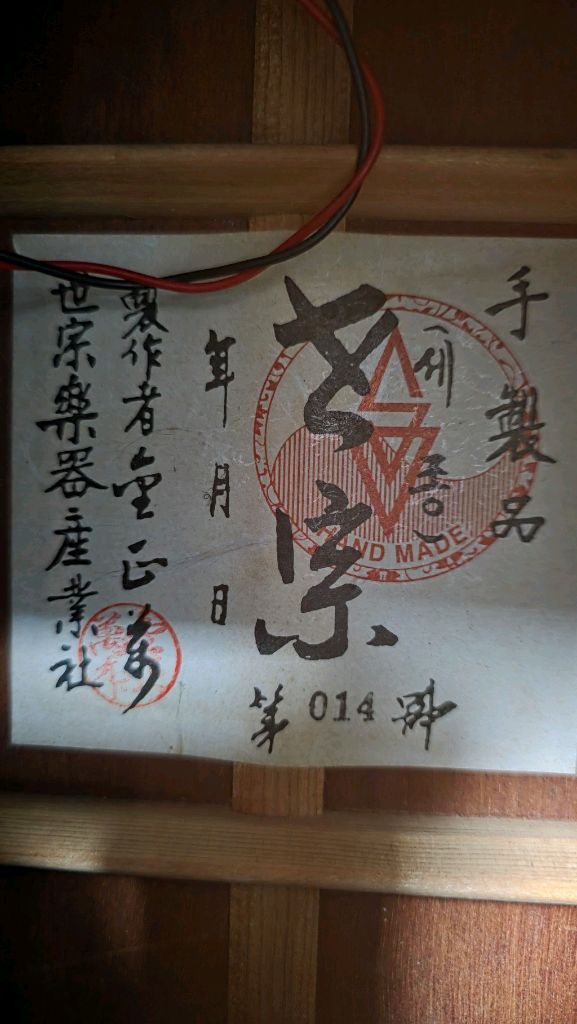 手製品
HAND MADE
世宗
第 014 號
年 月 日
製作者 金正萬
世宗樂器產業社